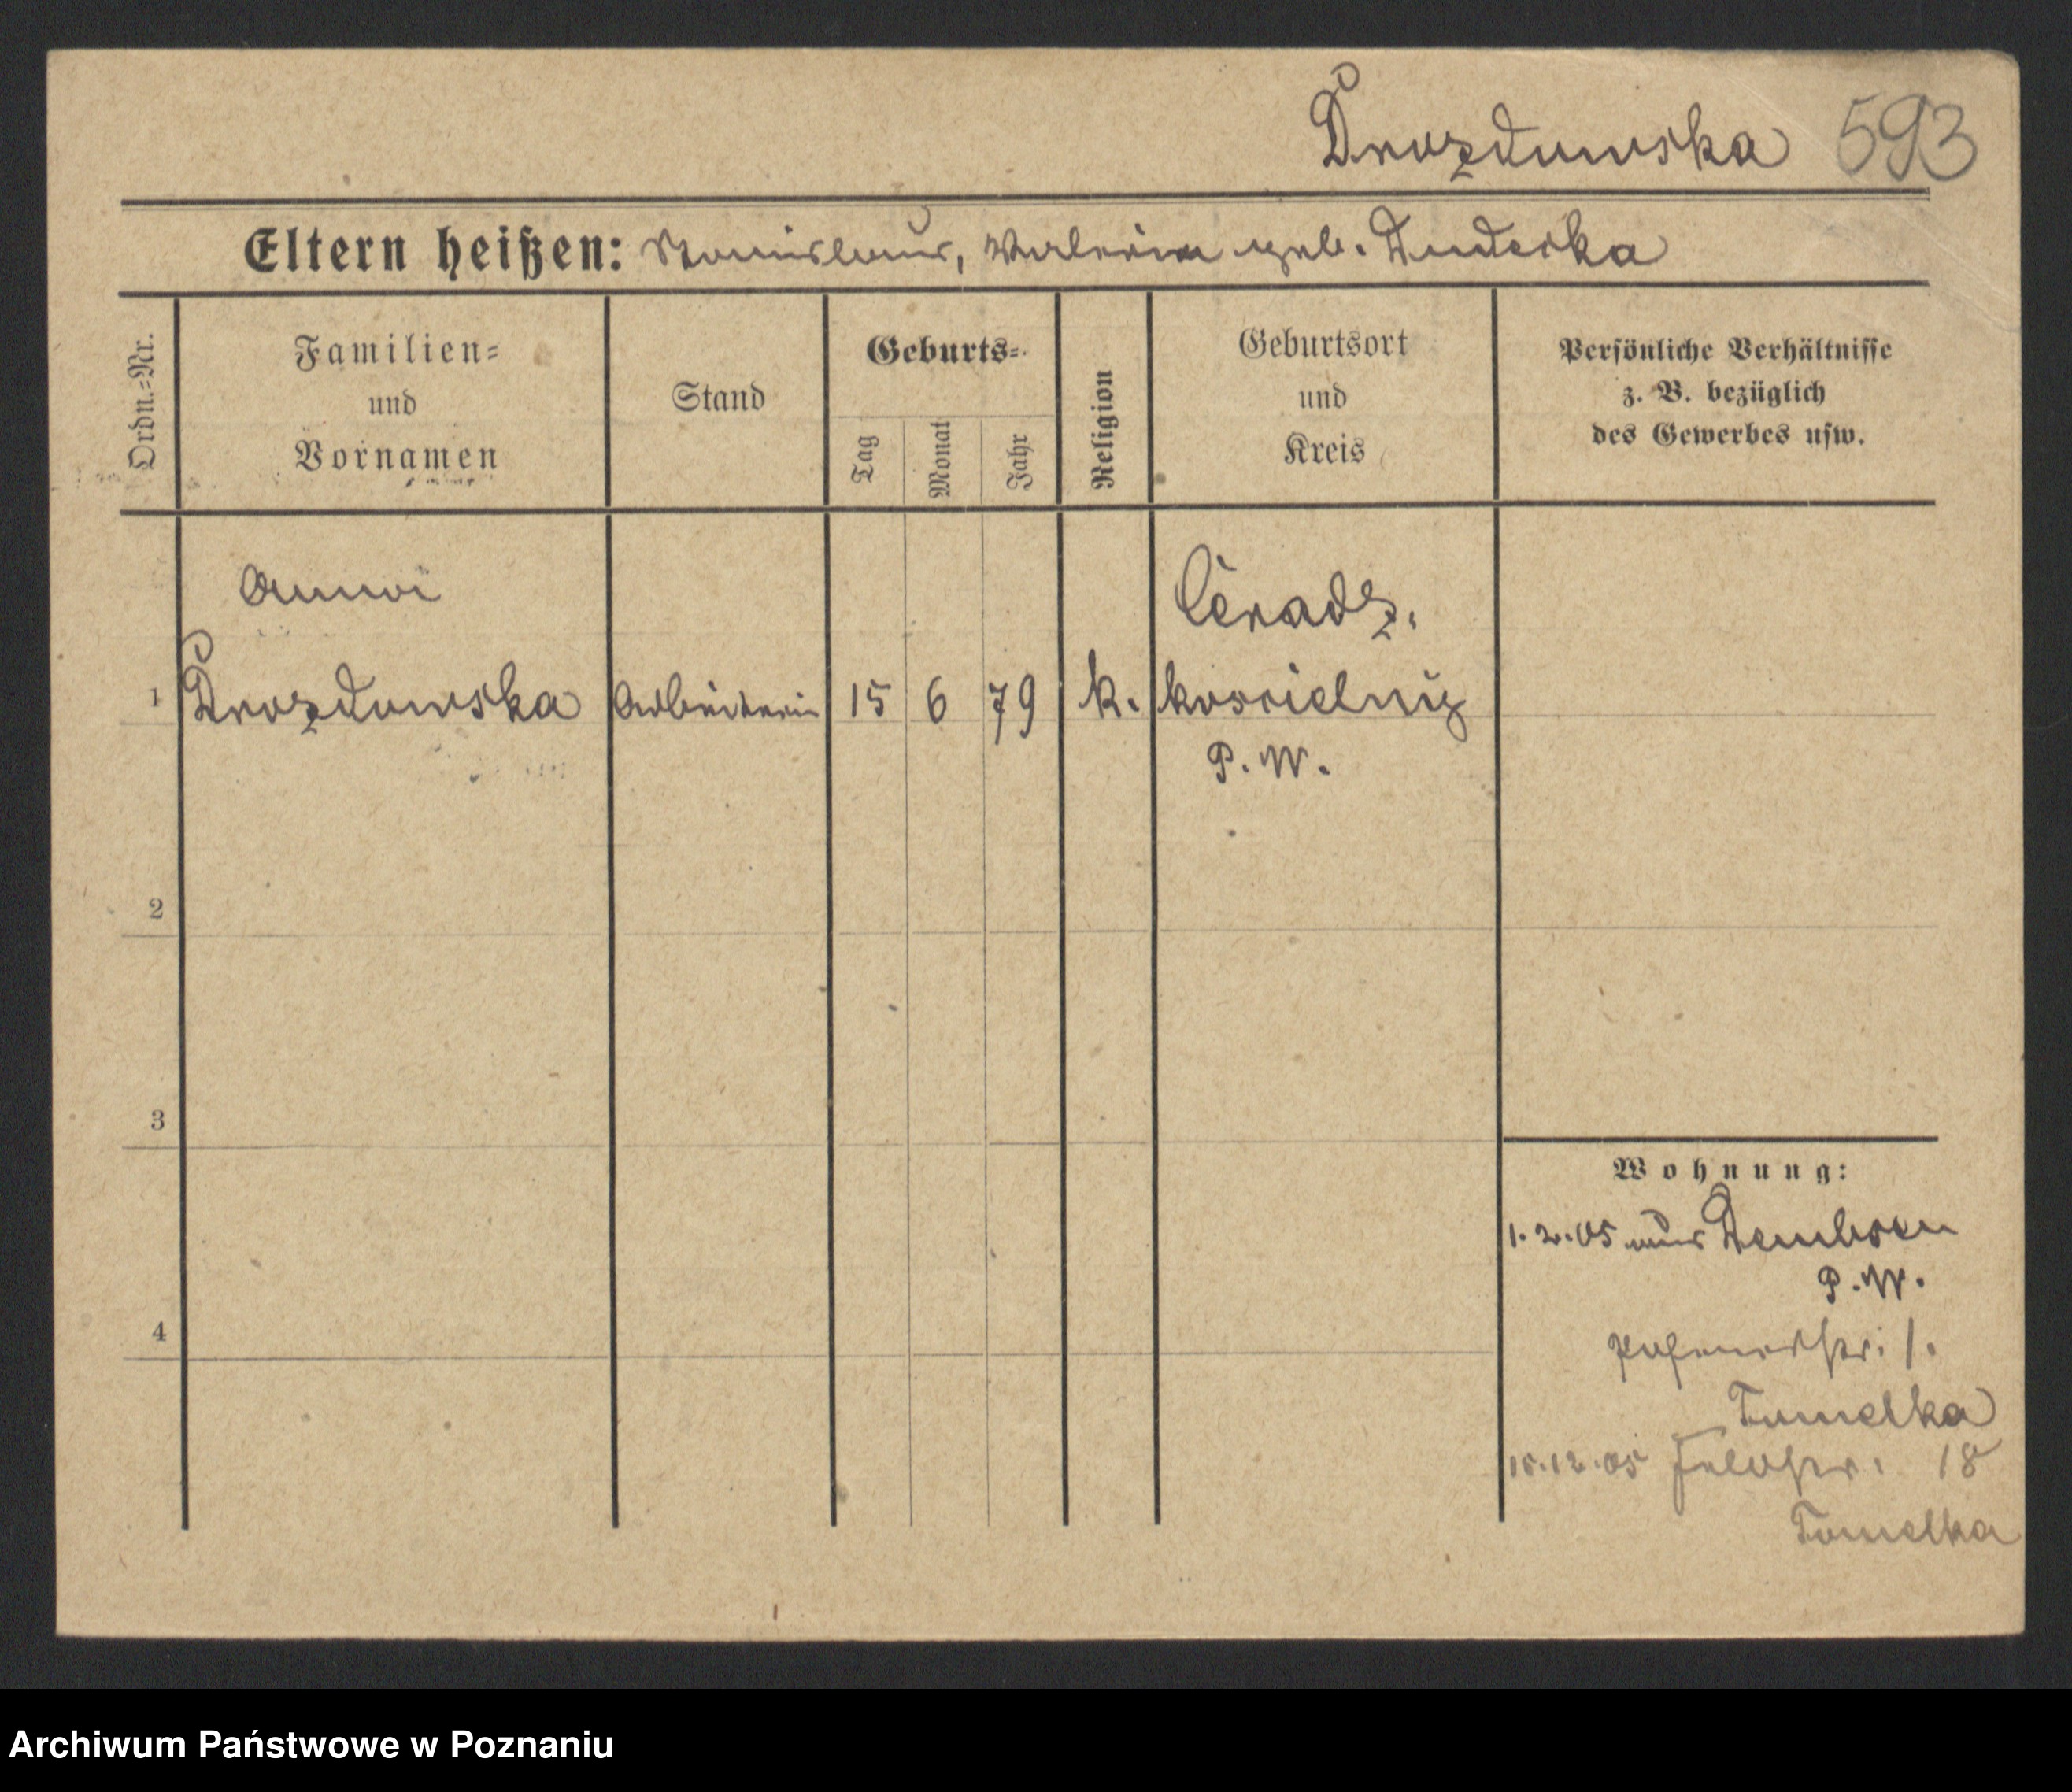 Drozdowska 593
Eltern heißen: Stanislaus, Valeria geb. Duderka
Ordn.=Nr.
Familien=
und
Vornamen
Stand
Geburts=
Tag
Monat
Jahr
Religion
Geburtsort
und
Kreis
Persönliche Verhältnisse
z. B. bezüglich
des Gewerbes usw.
Czeradz.
1 Drozdowska Arbeiterin 15 6 79 k. koscielny
P. W.
2
3
4
Wohnung:
1.2.05 aus Dembsen
P. W.
Posenerstr. 1.
Tomelka
15.12.05 Feldstr. 18
Tomelka
Archiwum Państwowe w Poznaniu